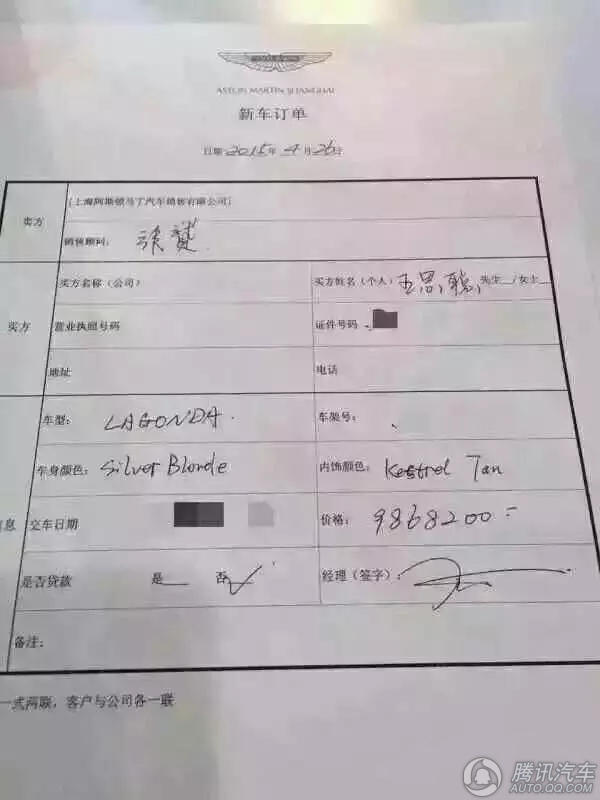 ASTON MARTIN SHANGHAI
新车订单
日期 2015年 4月 26日
卖方
[上海阿斯顿马丁汽车销售有限公司]
销售顾问:
买方
买方名称（公司）
买方姓名（个人）王思聪 先生__/女士__
营业执照号码
证件号码
地址
电话
车型: LAGONDA
车架号:
车身颜色: Silver Blonde
内饰颜色: Kestrel Tan
息
交车日期
价格: 9868200
是否贷款 是 否✓
经理（签字）:
备注:
一式两联，客户与公司各一联
腾讯汽车
AUTO.QQ.COM